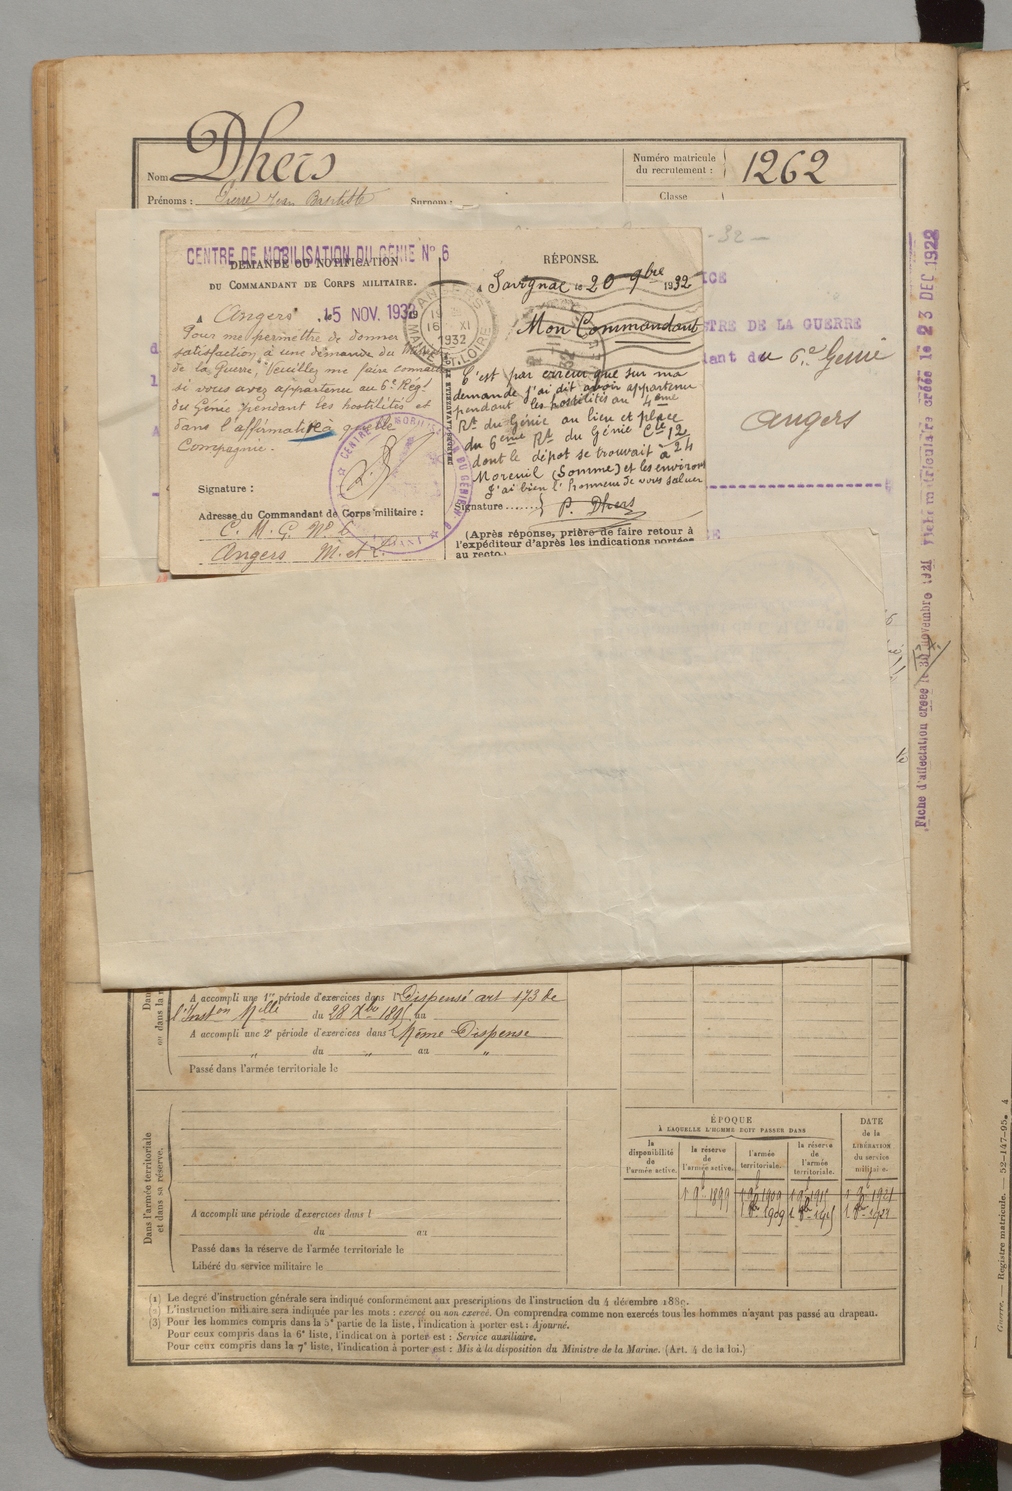 Nom Dhers
Prénoms : Pierre Jean Baptiste Surnom :
Numéro matricule
du recrutement :
1262
Classe
-32-
CENTRE DE MOBILISATION DU GÉNIE N° 6
DEMANDE OU NOTIFICATION
DU COMMANDANT DE CORPS MILITAIRE.
A Angers 15 NOV. 1932
Pour me permettre de donner
satisfaction à une demande du
de la Guerre, veuillez me faire
si vous avez appartenu au 6e Régt
du Génie pendant les hostilités et
dans l'affirmative à quelle
Compagnie.
Signature :
Adresse du Commandant de Corps militaire :
C. M. G. N° 6
Angers M. et L.
ANGERS
16 XI
1932
MAINE ET LOIRE
RÉPONSE.
A Savignac le 20 9bre 1932
Mon Commandant
C'est par erreur que sur ma
demande j'ai dit avoir appartenu
pendant les hostilités au 4eme
Rt du Génie au lieu et place
du 6eme Rt du Génie Cie 12
dont le dépôt se trouvait à 24
Moreuil (Somme) et les environs
J'ai bien l'honneur de vous saluer
Signature...... P. Dhers
(Après réponse, prière de faire retour à
l'expéditeur d'après les indications portées
au recto.
ICE
TRE DE LA GUERRE
ant du 6e Génie
Angers
Fiche d'affectation créée le 30 Novembre 1921 Fiche matriculaire créée le 23 DEC 1922
A accompli une 1re période d'exercices dans l Dispensé art 173 de
l'Inston Mlle du 28 Xbre 1895 au
A accompli une 2e période d'exercices dans l Même Dispense
" du " au "
Passé dans l'armée territoriale le
Dans l'armée territoriale
et dans sa réserve.
A accompli une période d'exercices dans l
du au
Passé dans la réserve de l'armée territoriale le
Libéré du service militaire le
ÉPOQUE
À LAQUELLE L'HOMME DOIT PASSER DANS
DATE
de la
LIBÉRATION
du service
militaire.
la
disponibilité
de
l'armée active.
la réserve
de
l'armée active.
l'armée
territoriale.
la réserve
de
l'armée
territoriale.
(1) Le degré d'instruction générale sera indiqué conformément aux prescriptions de l'instruction du 4 décembre 1889.
(2) L'instruction militaire sera indiquée par les mots : exercé ou non exercé. On comprendra comme non exercés tous les hommes n'ayant pas passé au drapeau.
(3) Pour les hommes compris dans la 5e partie de la liste, l'indication à porter est : Ajourné.
Pour ceux compris dans la 6e liste, l'indication à porter est : Service auxiliaire.
Pour ceux compris dans la 7e liste, l'indication à porter est : Mis à la disposition du Ministre de la Marine. (Art. 4 de la loi.)
Guerre. — Registre matricule. — 52-147-95. 4